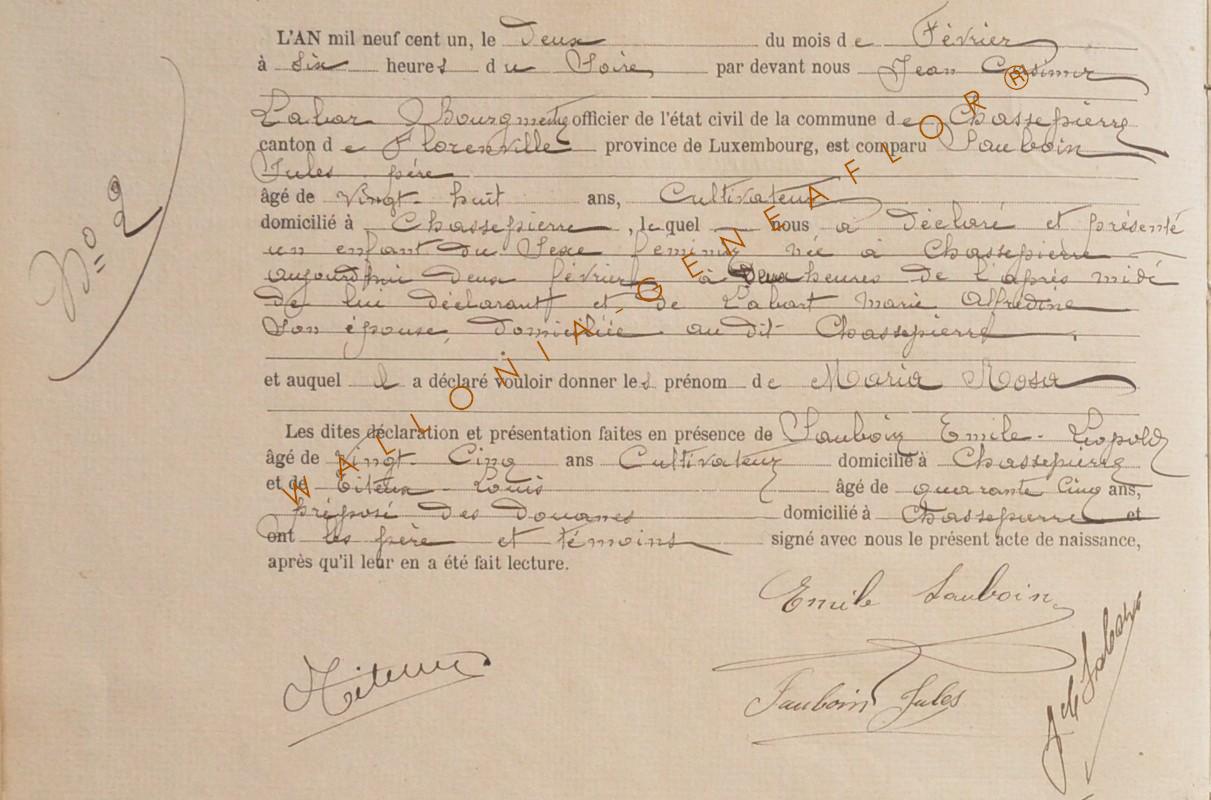 L'AN mil neuf cent un, le Deux du mois de Février
à Six heures du Soire, par devant nous Jean Casimir
Labar Bourgmestre officier de l'état civil de la commune de Chassepierre
canton de Florenville province de Luxembourg, est comparu Sauboin
Jules père
âgé de vingt-huit ans, Cultivateur
domicilié à Chassepierre, lequel nous a déclaré et présenté
un enfant du Sexe féminin née à Chassepierre
aujourdhui deux février à Deux heures de l'après midi
de lui déclarant et de Labart Marie Alfredine
Son épouse, domiciliée au dit Chassepierre.
et auquel il a déclaré vouloir donner les prénom de Maria Rosa
Les dites déclaration et présentation faites en présence de Sauboin Emile-Léopold
âgé de vingt-Cinq ans Cultivateur domicilié à Chassepierre
et de Titeux-Louis âgé de quarante Cinq ans,
préposé des Douanes domicilié à Chassepierre et
ont les père et témoins signé avec nous le présent acte de naissance,
après qu'il leur en a été fait lecture.
N° 2
Emile Sauboin
Titeux
Sauboin Jules
WALLONIA-GENEAFLOR®